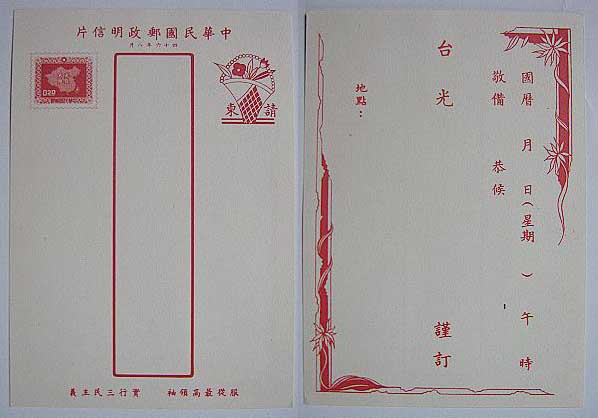 中華民國郵政明信片
四十六年八月
0.20
請柬
服從最高領袖 實行三民主義
國曆 月 日(星期 )午 時
敬備 恭候
台光 謹訂
地點：